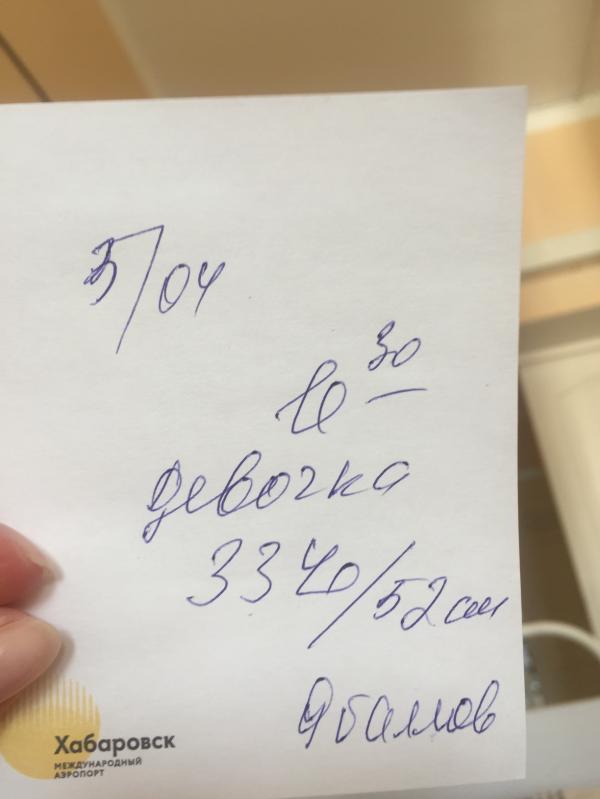 5/04
10 30
девочка
3340/52 см
9 баллов
Хабаровск
МЕЖДУНАРОДНЫЙ
АЭРОПОРТ